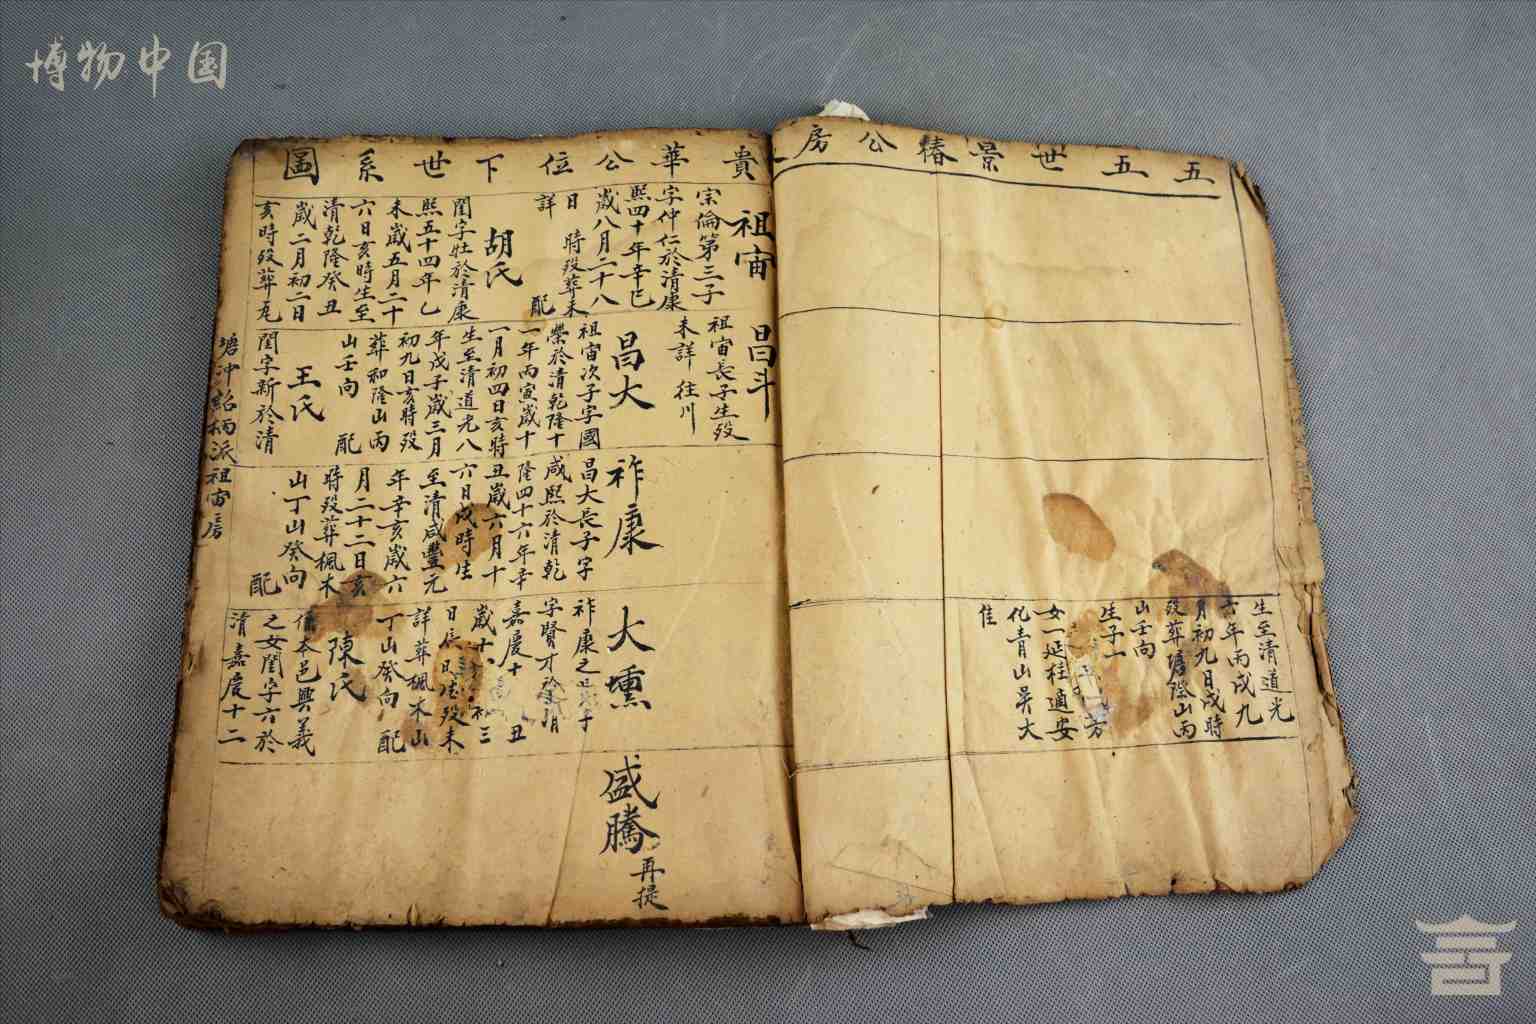 博物中国
五五世景椿公房
生至清道光
六年丙戌九
月初九日戌時
殁葬塘際山丙
山壬向
生子一
芳
女一延桂適安
化青山吳大
佳
貴華公位下世系圖
祖宙
宗倫第三子
字仲仁於清康
熙四十年辛巳
歲八月二十八
日 時殁葬未
詳 配
胡氏
閨字壯於清康
熙五十四年乙
未歲五月二十
六日亥時生至
清乾隆癸丑
歲二月初二日
亥時殁葬瓦
昌斗
祖宙長子生殁
未詳 往川
昌大
祖宙次子字國
榮於清乾隆十
一年丙寅歲十
一月初四日亥時
生至清道光八
年戊子歲三月
初九日亥時殁
葬和隆山丙
山壬向 配
王氏
閨字新於清
祚康
昌大長子字
咸熙於清乾
隆四十六年辛
丑歲六月十
六日戌時生
至清咸豐元
年辛亥歲六
月二十二日亥
時殁葬楓木
山丁山癸向
配
大壎
祚康之長子
字賢才於清
嘉慶十 丑
歲十 初三
日辰時生殁未
詳葬楓木山
丁山癸向 配
陳氏
係本邑興義
之女閨字六於
清嘉慶十二
盛騰
再提
塘冲銘柄派祖宙房